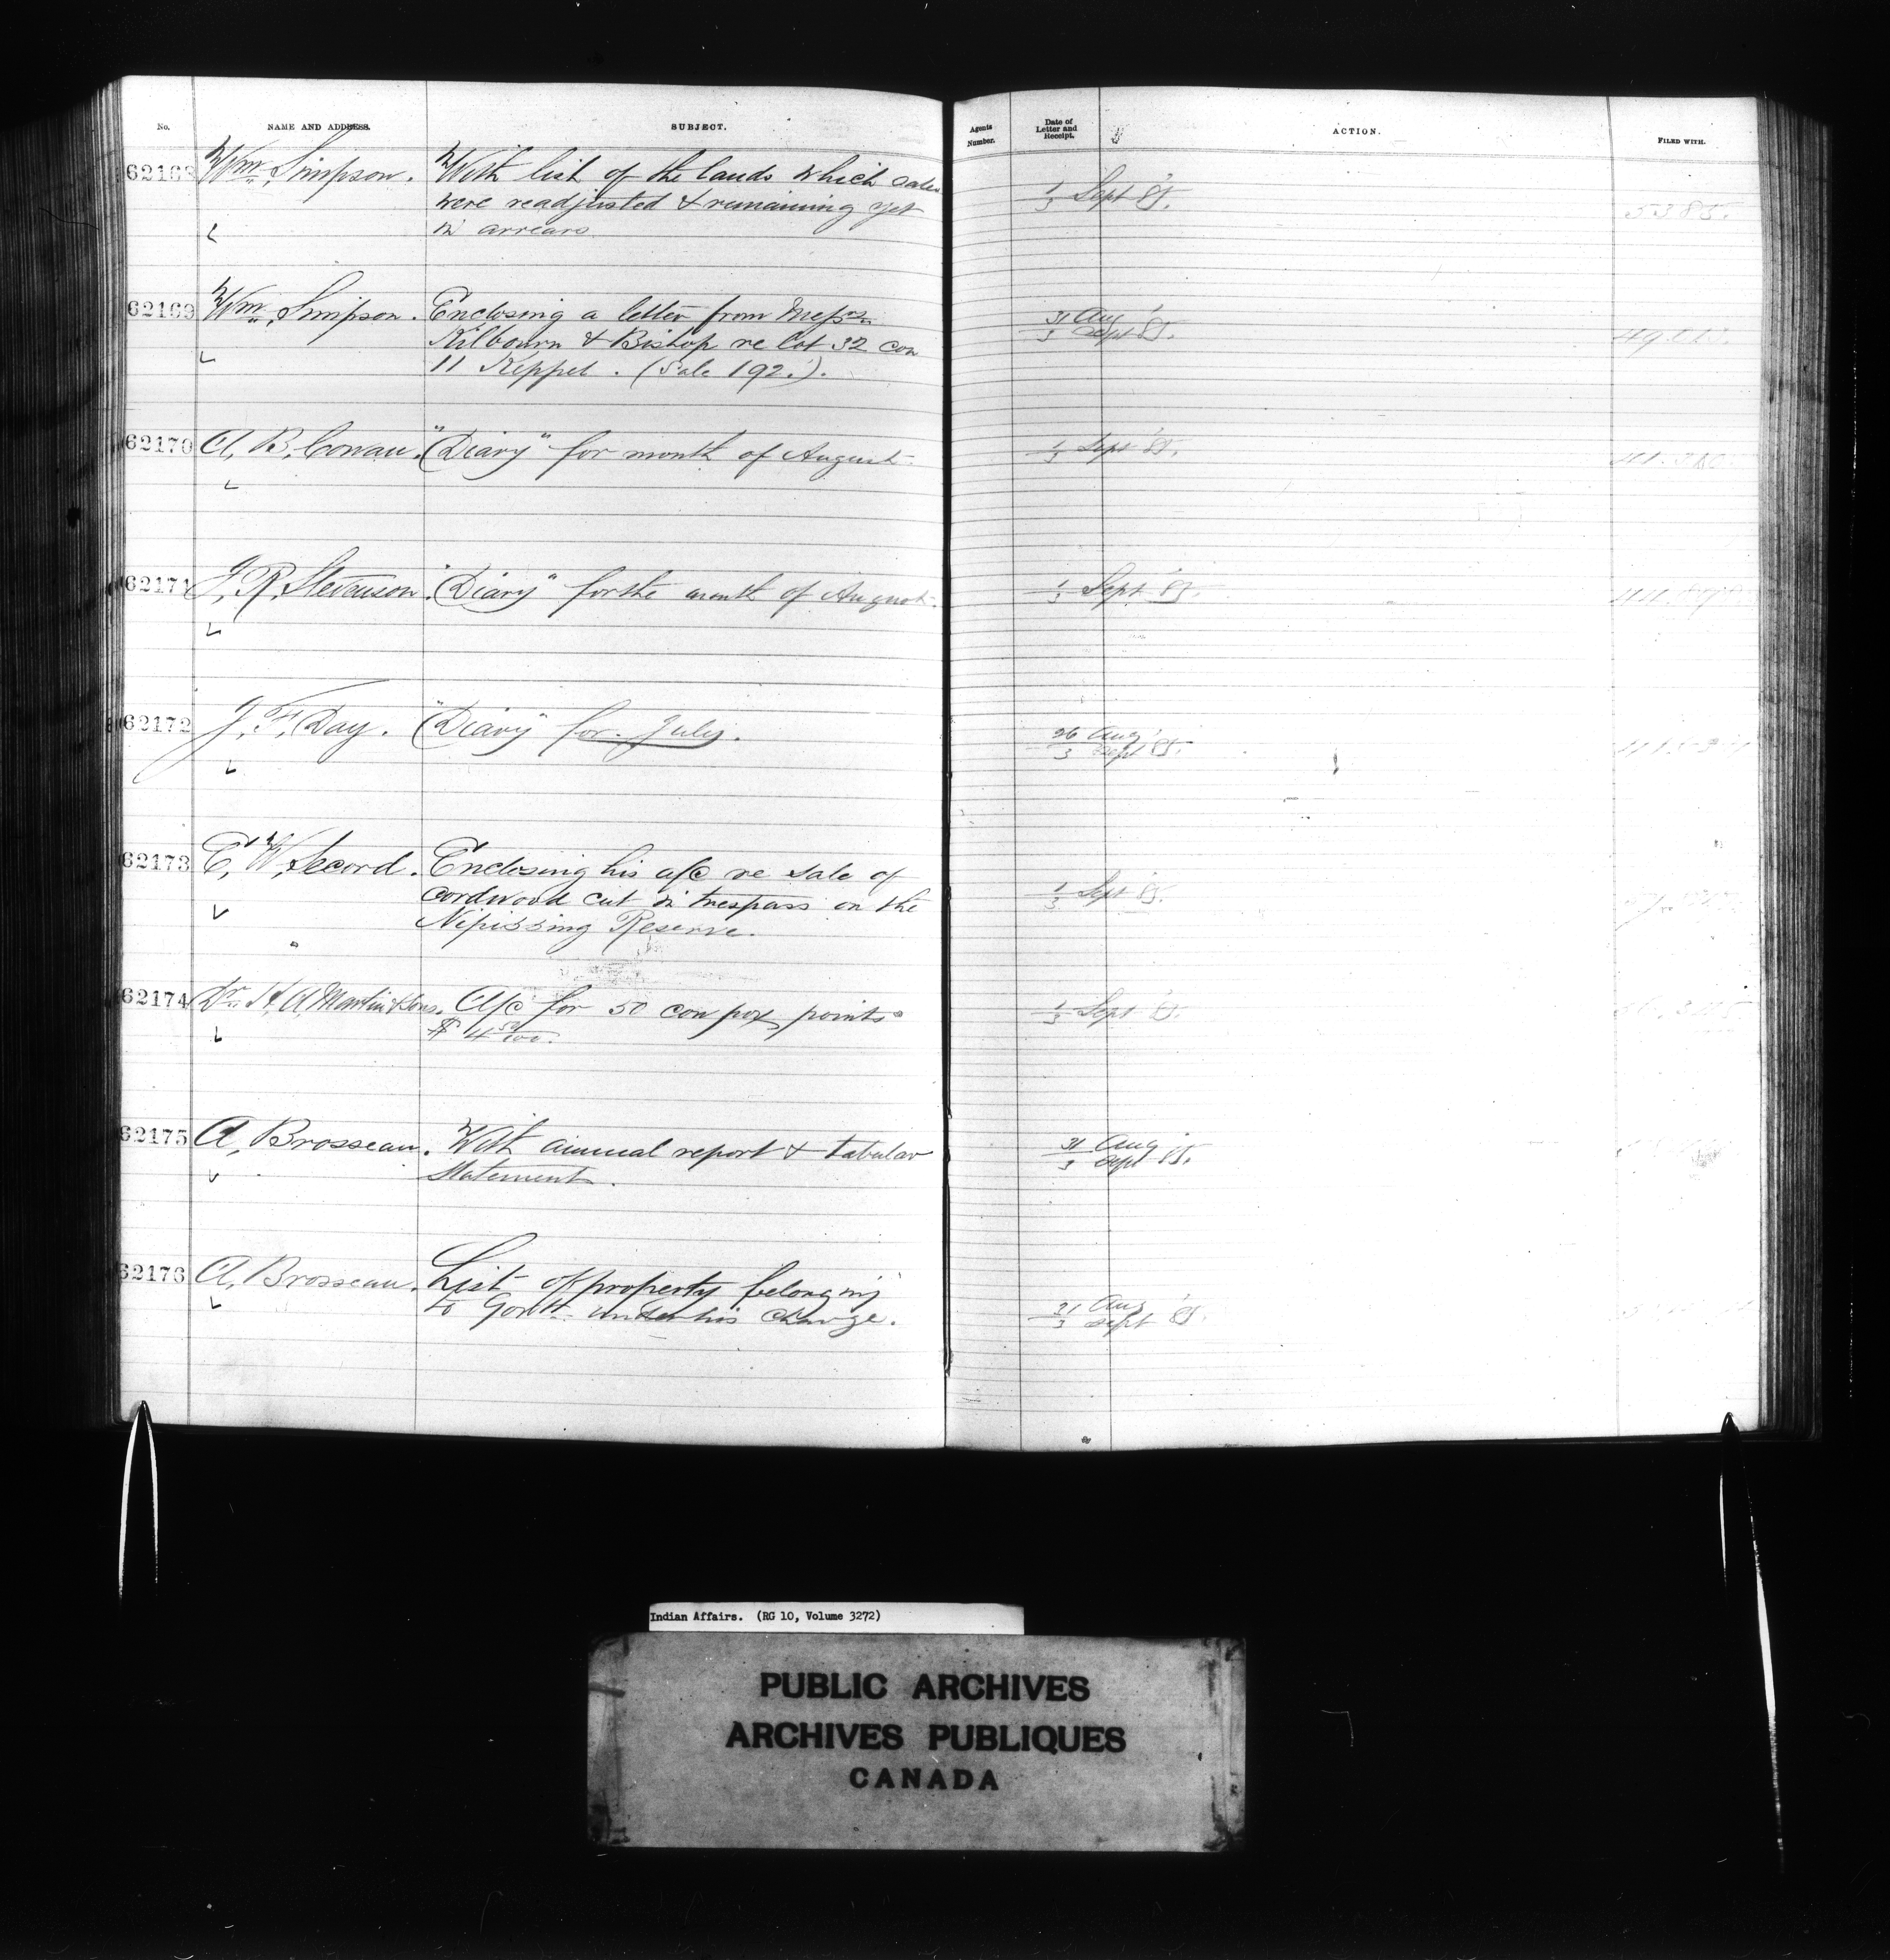 No. NAME AND ADDRESS. SUBJECT. Agents Number. Date of Letter and Receipt. ACTION. FILED WITH.
62168 Wm. Simpson. With list of the lands which sales
were readjusted & remaining yet
in arrears
1/3 Sept '85. 5385.
62169 Wm. Simpson. Enclosing a letter from Messrs.
Kilbourn & Bishop re lot 32 con
11 Keppel. (Sale 192.).
31 Aug / 3 Sept '85.
62170 A. B. Cowan. "Diary" for month of August.
1/3 Sept '85.
62171 J. R. Stevenson. "Diary" for the month of August.
1/3 Sept '85.
62172 J. F. Day. "Diary" for July.
26 Aug / 3 Sept '85.
62173 E. W. Secord. Enclosing his a/c re sale of
cordwood cut in trespass on the
Nipissing Reserve.
1/3 Sept '85.
62174 Dr. H. A. Martin & Sons. A/c for 50 cow pox points
$ 4 50/100.
1/3 Sept '85.
62175 A. Brosseau. With annual report & tabular
statement.
31 Aug / 3 Sept '85.
62176 A. Brosseau. List of property belonging
to Govt. under his charge.
31 Aug / 3 Sept '85.
Indian Affairs. (RG 10, Volume 3272)
PUBLIC ARCHIVES
ARCHIVES PUBLIQUES
CANADA